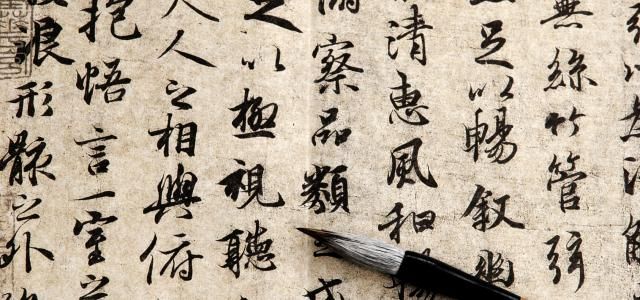 以為流
無絲竹管弦
足以暢敘幽
清惠風和暢
察品類之盛
足以極視聽
夫人之相與俯
抱悟言一室之
浪形骸之外